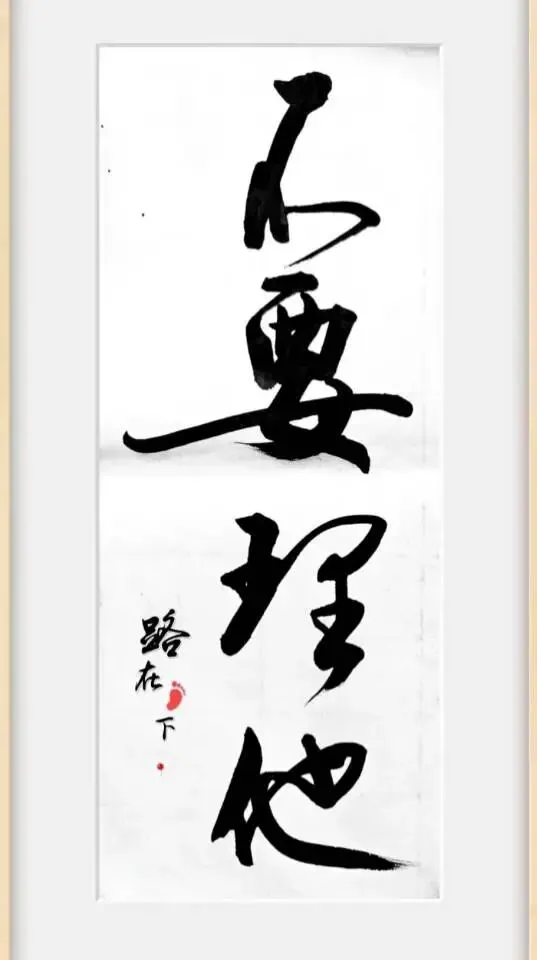 不要理他
路在下